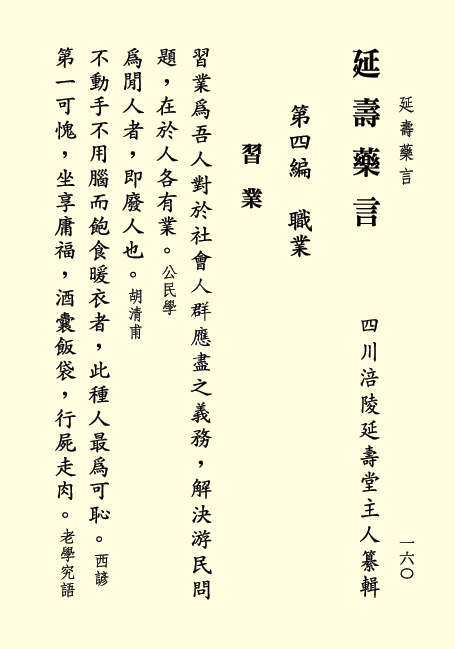 延壽藥言
一六〇
延壽藥言
四川涪陵延壽堂主人纂輯
第四編　職業
習業
習業爲吾人對於社會人群應盡之義務，解決游民問
題，在於人各有業。公民學
爲閒人者，即廢人也。胡清甫
不動手不用腦而飽食暖衣者，此種人最爲可恥。西諺
第一可愧，坐享庸福，酒囊飯袋，行屍走肉。老學究語